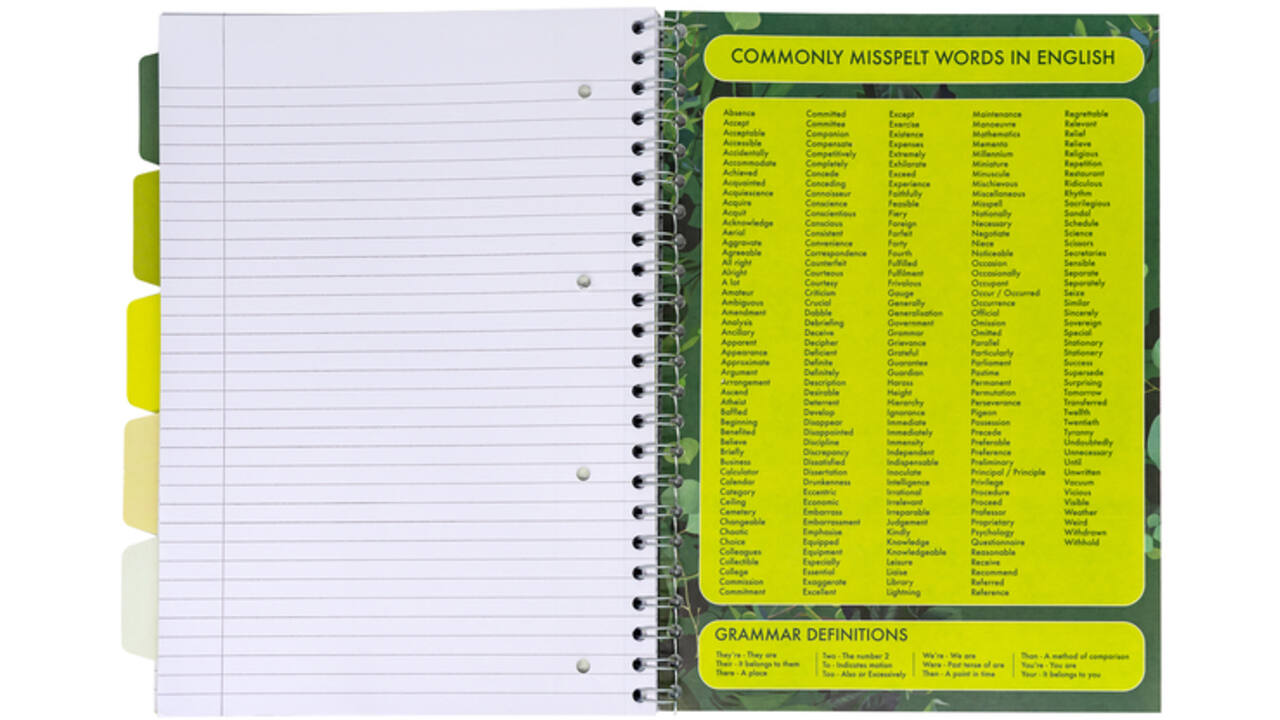 COMMONLY MISSPELT WORDS IN ENGLISH
Absence
Accept
Acceptable
Accessible
Accidentally
Accommodate
Achieved
Acquainted
Acquiescence
Acquire
Acquit
Acknowledge
Aerial
Aggravate
Agreeable
All right
Alright
A lot
Amateur
Ambiguous
Amendment
Analysis
Ancillary
Apparent
Appearance
Approximate
Argument
Arrangement
Ascend
Atheist
Baffled
Beginning
Benefited
Believe
Briefly
Business
Calculator
Calendar
Category
Ceiling
Cemetery
Changeable
Chaotic
Choice
Colleagues
Collectible
College
Commission
Commitment
Committed
Committee
Companion
Compensate
Competitively
Completely
Concede
Conceding
Connoisseur
Conscience
Conscientious
Conscious
Consistent
Convenience
Correspondence
Counterfeit
Courteous
Courtesy
Criticism
Crucial
Dabble
Debriefing
Deceive
Decipher
Deficient
Definite
Definitely
Description
Desirable
Deterrent
Develop
Disappear
Disappointed
Discipline
Discrepancy
Dissatisfied
Dissertation
Drunkenness
Eccentric
Economic
Embarrass
Embarrassment
Emphasise
Equipped
Equipment
Especially
Essential
Exaggerate
Excellent
Except
Exercise
Existence
Expenses
Extremely
Exhilarate
Exceed
Experience
Faithfully
Feasible
Fiery
Foreign
Forfeit
Forty
Fourth
Fulfilled
Fulfilment
Frivolous
Gauge
Generally
Generalisation
Government
Grammar
Grievance
Grateful
Guarantee
Guardian
Harass
Height
Hierarchy
Ignorance
Immediate
Immediately
Immensity
Independent
Indispensable
Inoculate
Intelligence
Irrational
Irrelevant
Irreparable
Judgement
Kindly
Knowledge
Knowledgeable
Leisure
Liaise
Library
Lightning
Maintenance
Manoeuvre
Mathematics
Memento
Millennium
Miniature
Minuscule
Mischievous
Miscellaneous
Misspell
Nationally
Necessary
Negotiate
Niece
Noticeable
Occasion
Occasionally
Occupant
Occur / Occurred
Occurrence
Official
Omission
Omitted
Parallel
Particularly
Parliament
Pastime
Permanent
Permutation
Perseverance
Pigeon
Possession
Precede
Preferable
Preference
Preliminary
Principal / Principle
Privilege
Procedure
Proceed
Professor
Proprietary
Psychology
Questionnaire
Reasonable
Receive
Recommend
Referred
Reference
Regrettable
Relevant
Relief
Relieve
Religious
Repetition
Restaurant
Ridiculous
Rhythm
Sacrilegious
Sandal
Schedule
Science
Scissors
Secretaries
Sensible
Separate
Separately
Seize
Similar
Sincerely
Sovereign
Special
Stationary
Stationery
Success
Supersede
Surprising
Tomorrow
Transferred
Twelfth
Twentieth
Tyranny
Undoubtedly
Unnecessary
Until
Unwritten
Vacuum
Vicious
Visible
Weather
Weird
Withdrawn
Withhold
GRAMMAR DEFINITIONS
They're - They are
Their - It belongs to them
There - A place
Two - The number 2
To - Indicates motion
Too - Also or Excessively
We're - We are
Were - Past tense of are
Then - A point in time
Than - A method of comparison
You're - You are
Your - It belongs to you